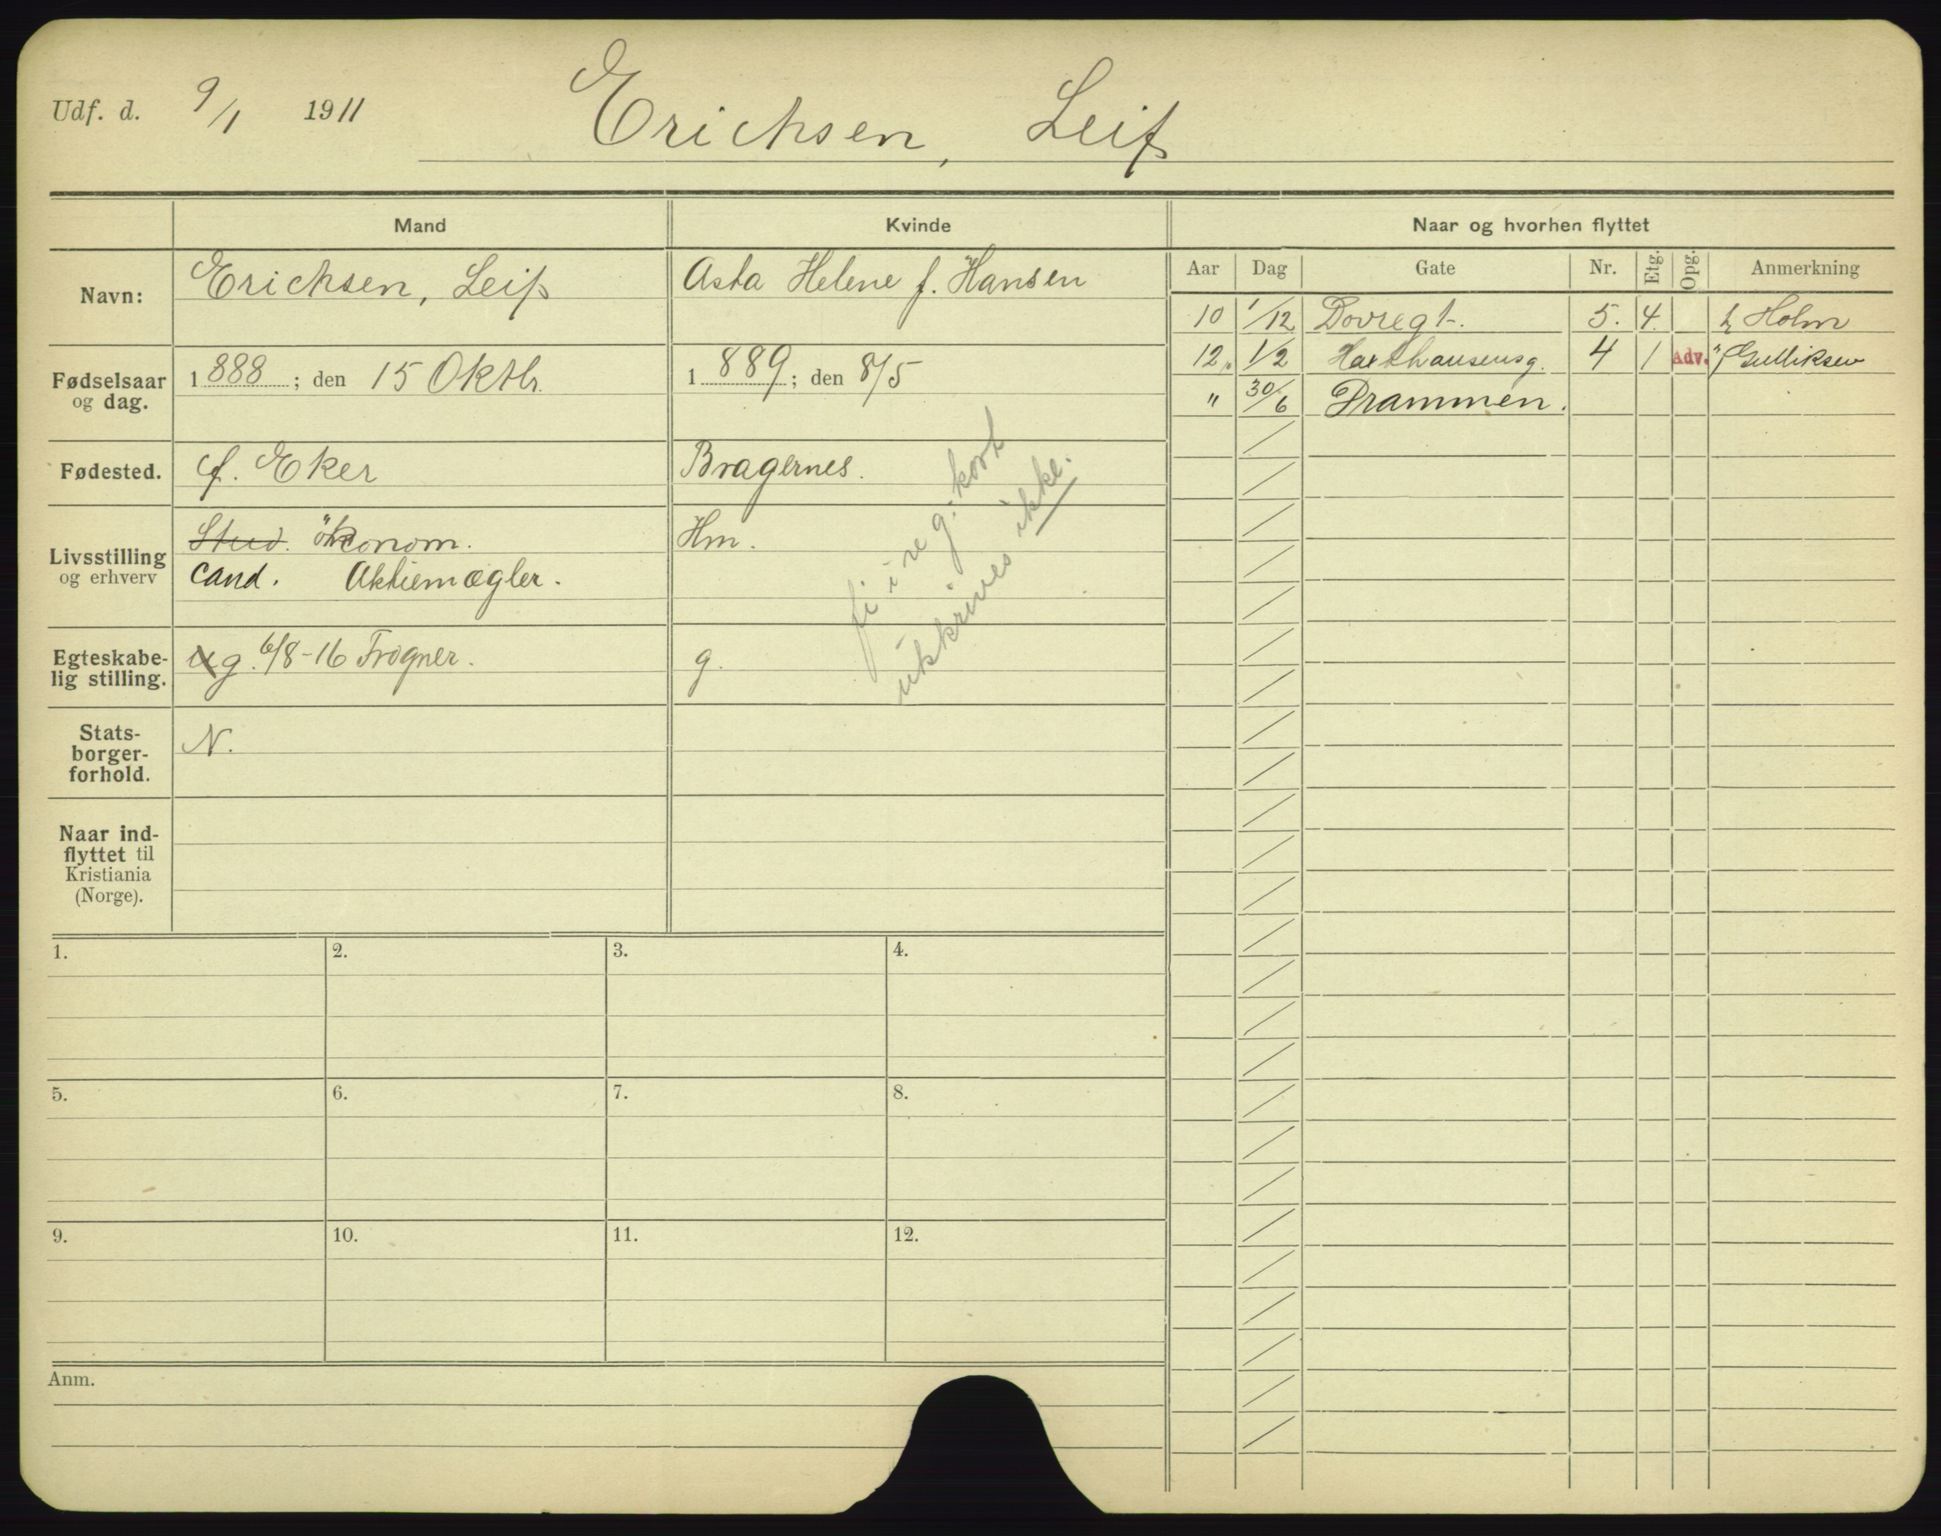 Udf. d. 9/1 1911 Erichsen, Leif
Mand Kvinde Naar og hvorhen flyttet
Navn: Erichsen, Leif Asta Helene f. Hansen
Aar Dag Gate Nr. Etg. Opg. Anmerkning
10 1/12 Dovregt. 5. 4. h Holm
12. 1/2 Haxthausensg. 4 1 Adv. " Gulliksen
" 30/6 Drammen.
Fødselsaar og dag. 1 888 ; den 15 Oktbr. 1 889 ; den 8/5
Fødested. f. Eker Bragernes.
Livsstilling og erhverv Stud. økonom. Hm.
cand. Aktiemægler.
i reg. kort
utskrives ikke.
Egteskabe-
lig stilling. ug. 6/8-16 Frogner. g.
Stats-
borger-
forhold. N.
Naar ind-
flyttet til
Kristiania
(Norge).
1. 2. 3. 4.
5. 6. 7. 8.
9. 10. 11. 12.
Anm.